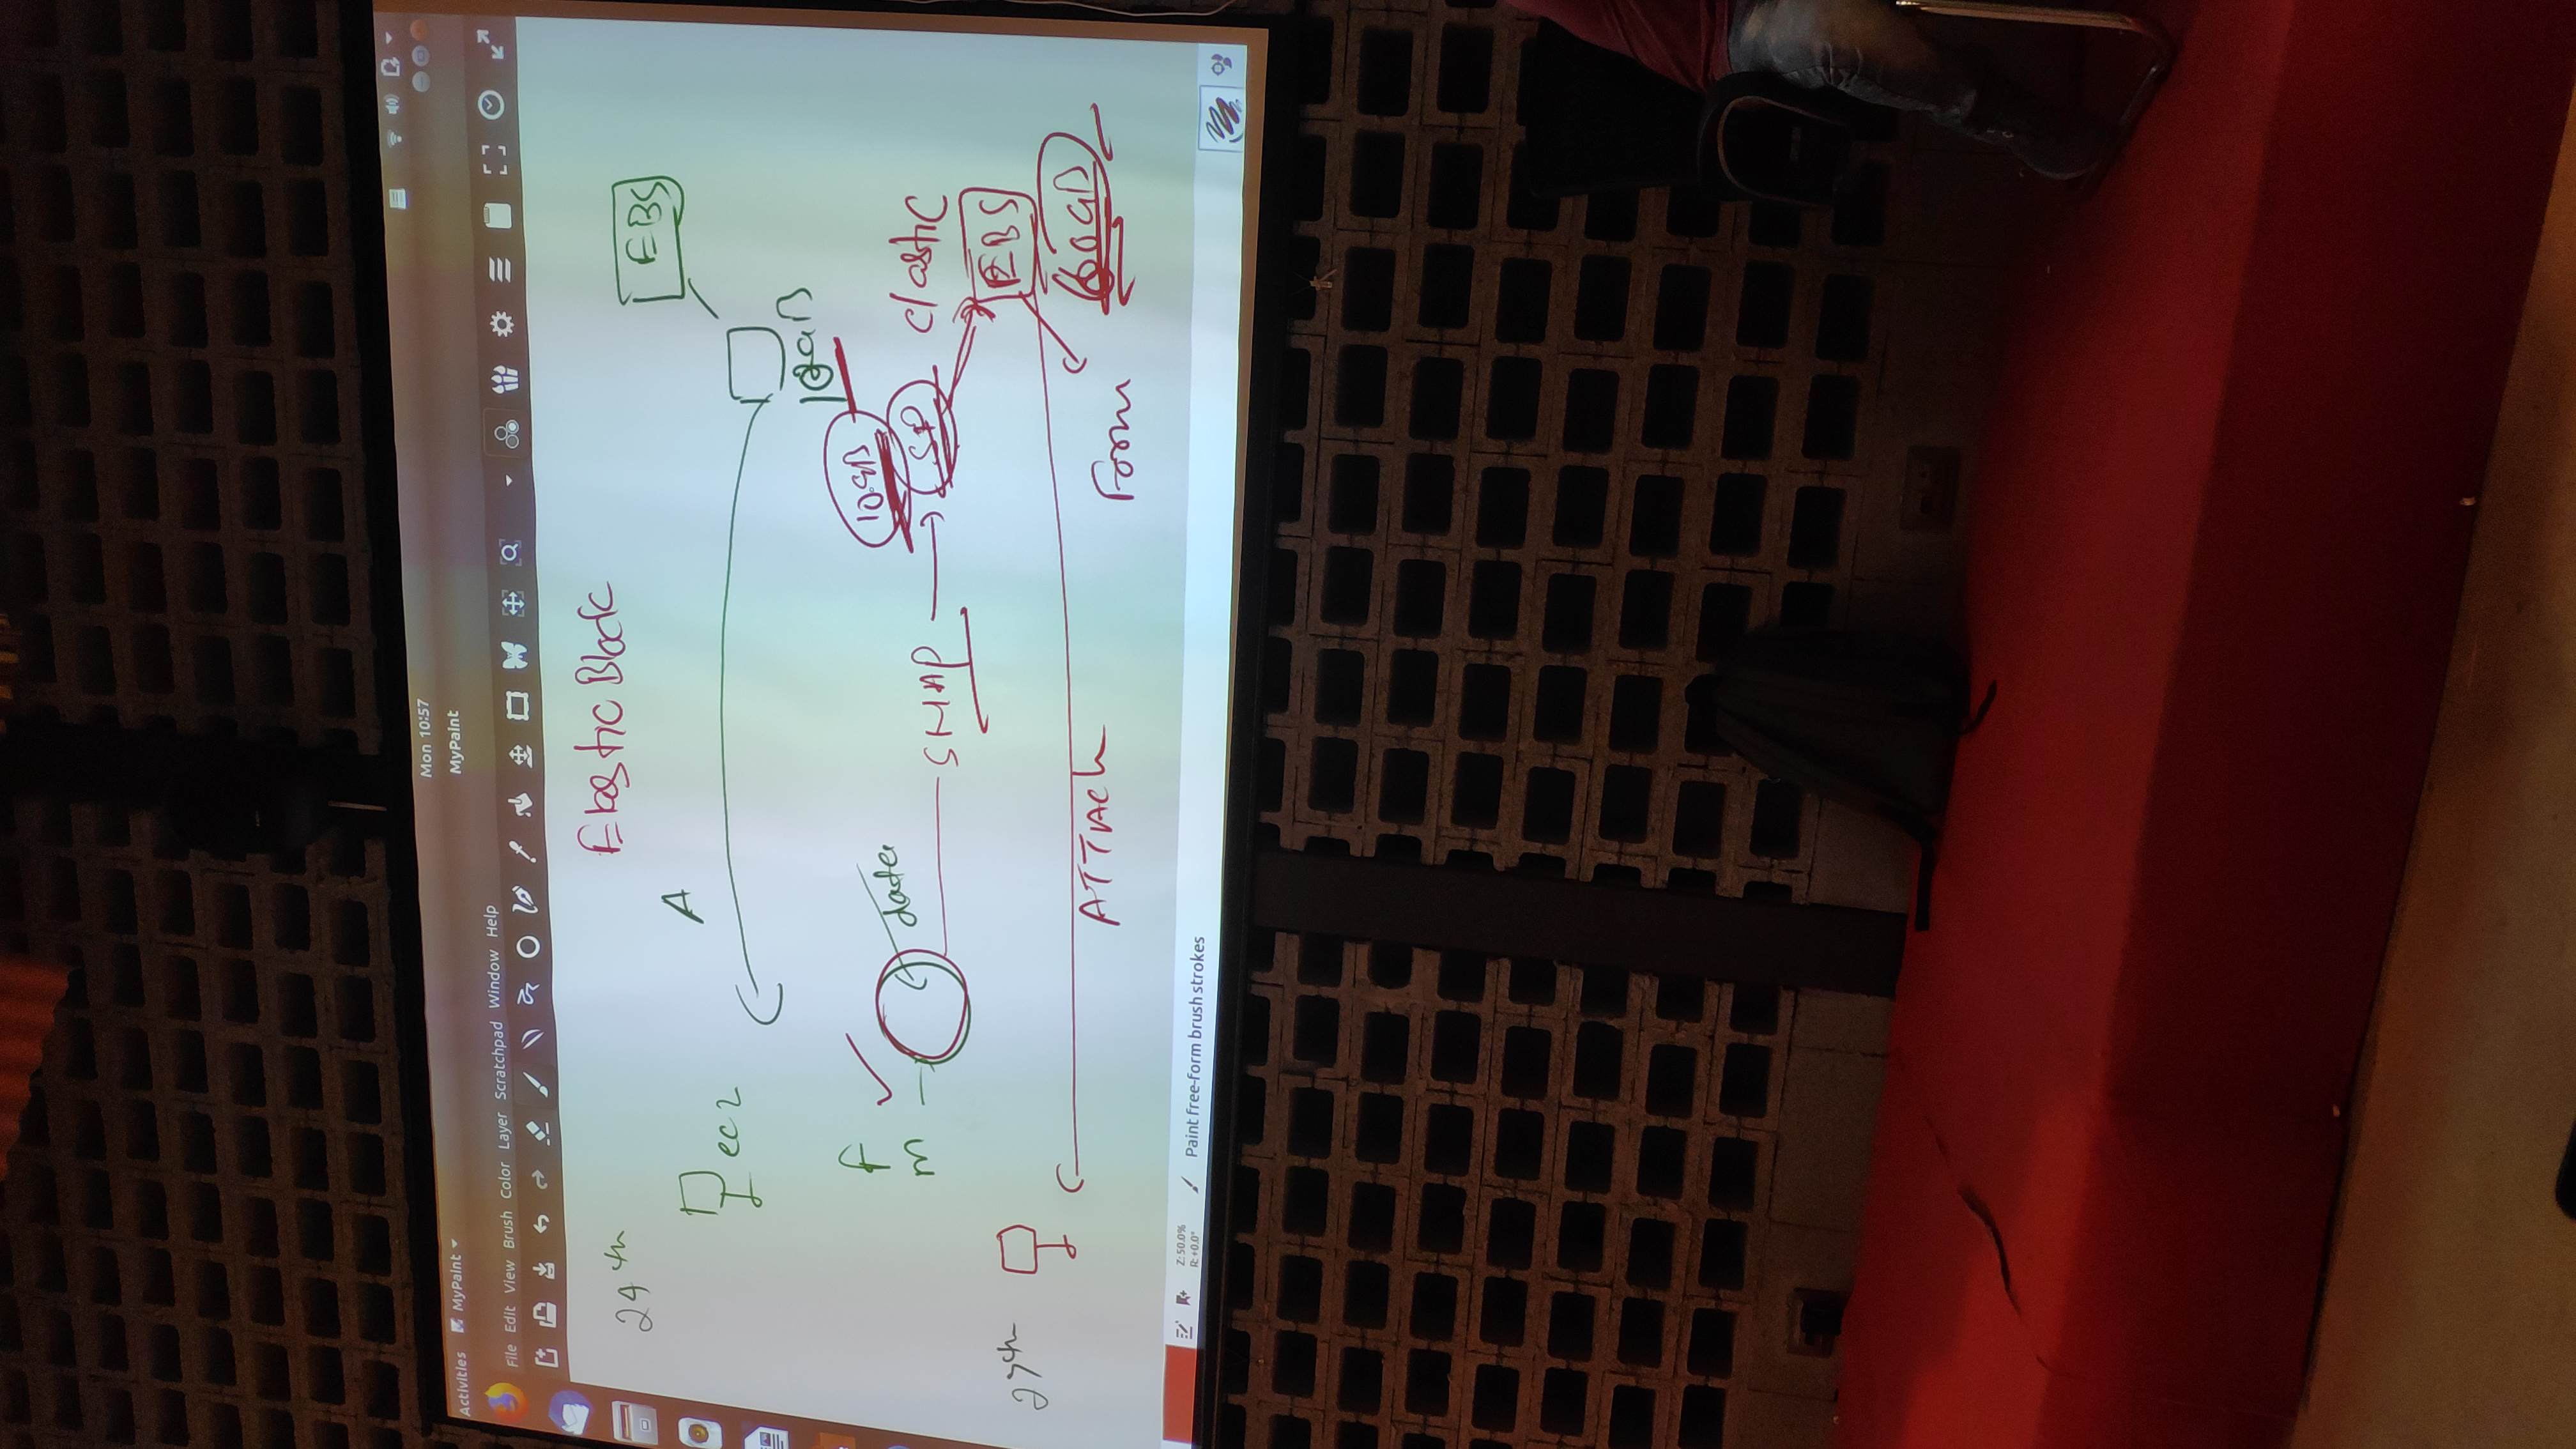 Mon 10:57
Activities MyPaint
MyPaint
File Edit View Brush Color Layer Scratchpad Window Help
Elastic Block
24th
EBS
A
ec2
10GB
f
10GB
m
data
SNAP
SP
elastic
EBS
27th
60GB
ATTACh
Form
Z: 50.0%
R: +0.0°
Paint free-form brush strokes